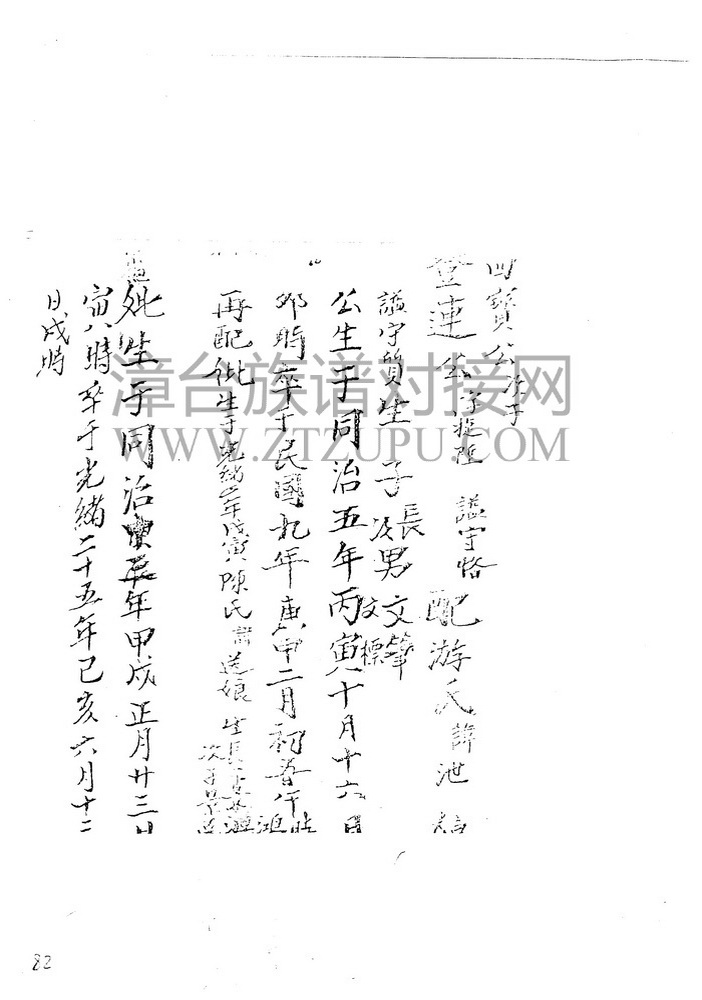 四寶公次子
登連公字捷陞 諡守恪 配游氏諱池
諡守質生子長男文筆
次文標
公生于同治五年丙寅十月十六日
卯時卒于民國九年庚申二月初五午時
再配妣生于光緒四年戊寅陳氏諱送娘 生長子
次子景
妣生于同治 年甲戌正月廿三日
寅時卒于光緒二十五年己亥六月十二
日戌時
漳台族谱对接网
WWW.ZTZUPU.COM
82